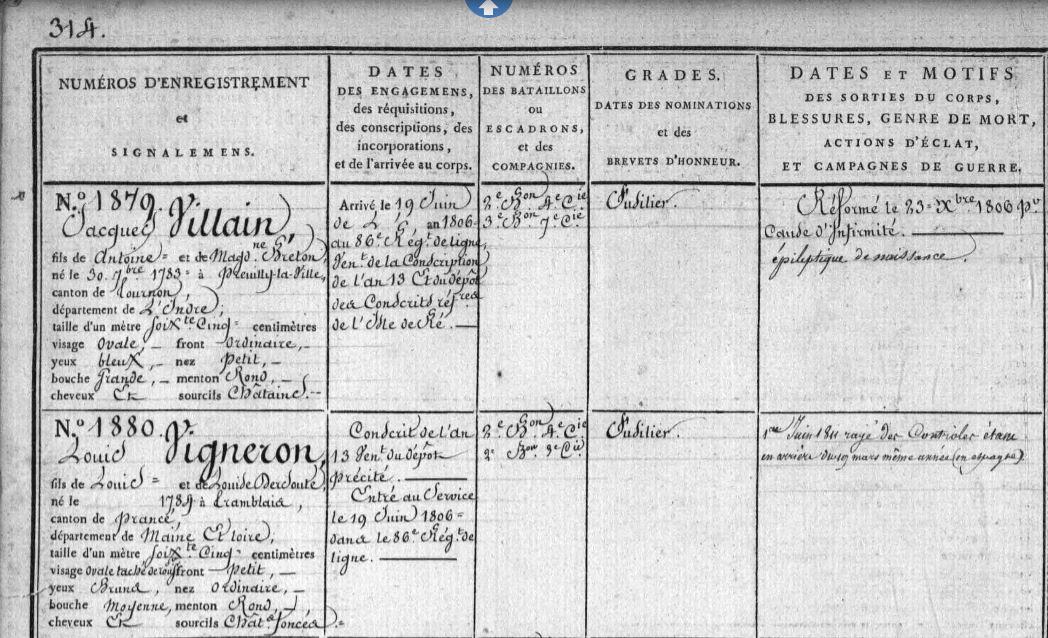 314.
NUMÉROS D'ENREGISTREMENT
et
SIGNALEMENS.
DATES
DES ENGAGEMENS,
des réquisitions,
des conscriptions, des
incorporations,
et de l'arrivée au corps.
NUMÉROS
DES BATAILLONS
ou
ESCADRONS,
et des
COMPAGNIES.
GRADES,
DATES DES NOMINATIONS
et des
BREVETS D'HONNEUR.
DATES ET MOTIFS
DES SORTIES DU CORPS,
BLESSURES, GENRE DE MORT,
ACTIONS D'ÉCLAT,
ET CAMPAGNES DE GUERRE.
N.º 1879.
Jacques Villain,
fils de Antoine = et de Magd.ne Breton,
né le 30. 7bre 1783 = à Preuilly-la-Ville,
canton de Tournon,
département de L'Indre,
taille d'un mètre soixte Cinq = centimètres
visage Ovale, – front Ordinaire, –
yeux bleux, – nez Petit, –
bouche Grande, – menton Rond, –
cheveux Et sourcils Châtains. –
Arrivé le 19 Juin
an 1806
au 86e Régt. de ligne,
Vent. de la Conscription
de l'an 13 Et du dépôt
des Conscrits réfres
de l'Isle de Ré. —
2e Bon 4e Cie
3e Bon 7e Cie
Fusilier.
Réformé le 23 = Xbre 1806 pr
Cause d'Infirmité. —
épileptique de naissance.
N.º 1880.
Louis Vigneron,
fils de Louis = et de Louise
né le 1784 à
canton de
département de Maine Et loire,
taille d'un mètre soixte. Cinq = centimètres
visage Ovale taché de rouss front Petit, –
yeux Bruns, nez Ordinaire, –
bouche Moyenne, menton Rond, –
cheveux Et sourcils Chât.s foncés. =
Conscrit de l'an
13 Vent. du dépôt
Précité. —
Entré au Service
le 19 Juin 1806 =
dans le 86e Régt. de
ligne. —
2e Bon 4e Cie
2e Bon 3e Cie
Fusilier.
1er Juin 1811 rayé des Controles étant
en arrière du 19 mars même année (en espagne)